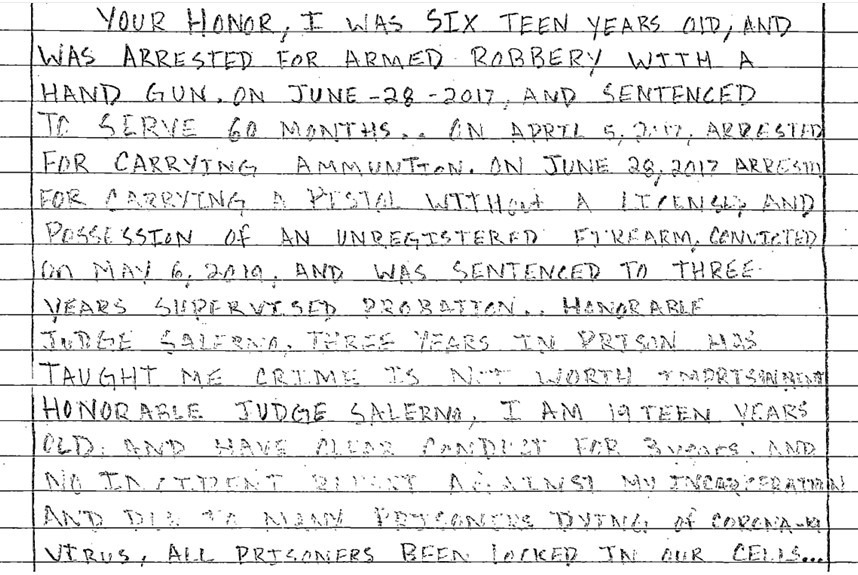 YOUR HONOR, I WAS SIX TEEN YEARS OLD, AND
WAS ARRESTED FOR ARMED ROBBERY WITH A
HAND GUN. ON JUNE-28-2017, AND SENTENCED
TO SERVE 60 MONTHS.. ON APRIL 5, 2017, ARRESTED
FOR CARRYING AMMUNTION. ON JUNE 28, 2017 ARRESTED
FOR CARRYING A PISTOL WITHOUT A LICENSE, AND
POSSESSION OF AN UNREGISTERED FIREARM, CONVICTED
ON MAY 6, 2019, AND WAS SENTENCED TO THREE
YEARS SUPERVISED PROBATION.. HONORABLE
JUDGE SALERNO, THREE YEARS IN PRISON HAS
TAUGHT ME CRIME IS NOT WORTH IMPRISONMENT
HONORABLE JUDGE SALERNO, I AM 19 TEEN YEARS
OLD, AND HAVE CLEAR CONDUCT FOR 3 years. AND
NO INCIDENT REPORT AGAINST MY INCARCERATION
AND DUE TO MANY PRISONERS DYING OF CORONA-19
VIRUS, ALL PRISONERS BEEN LOCKED IN OUR CELLS...